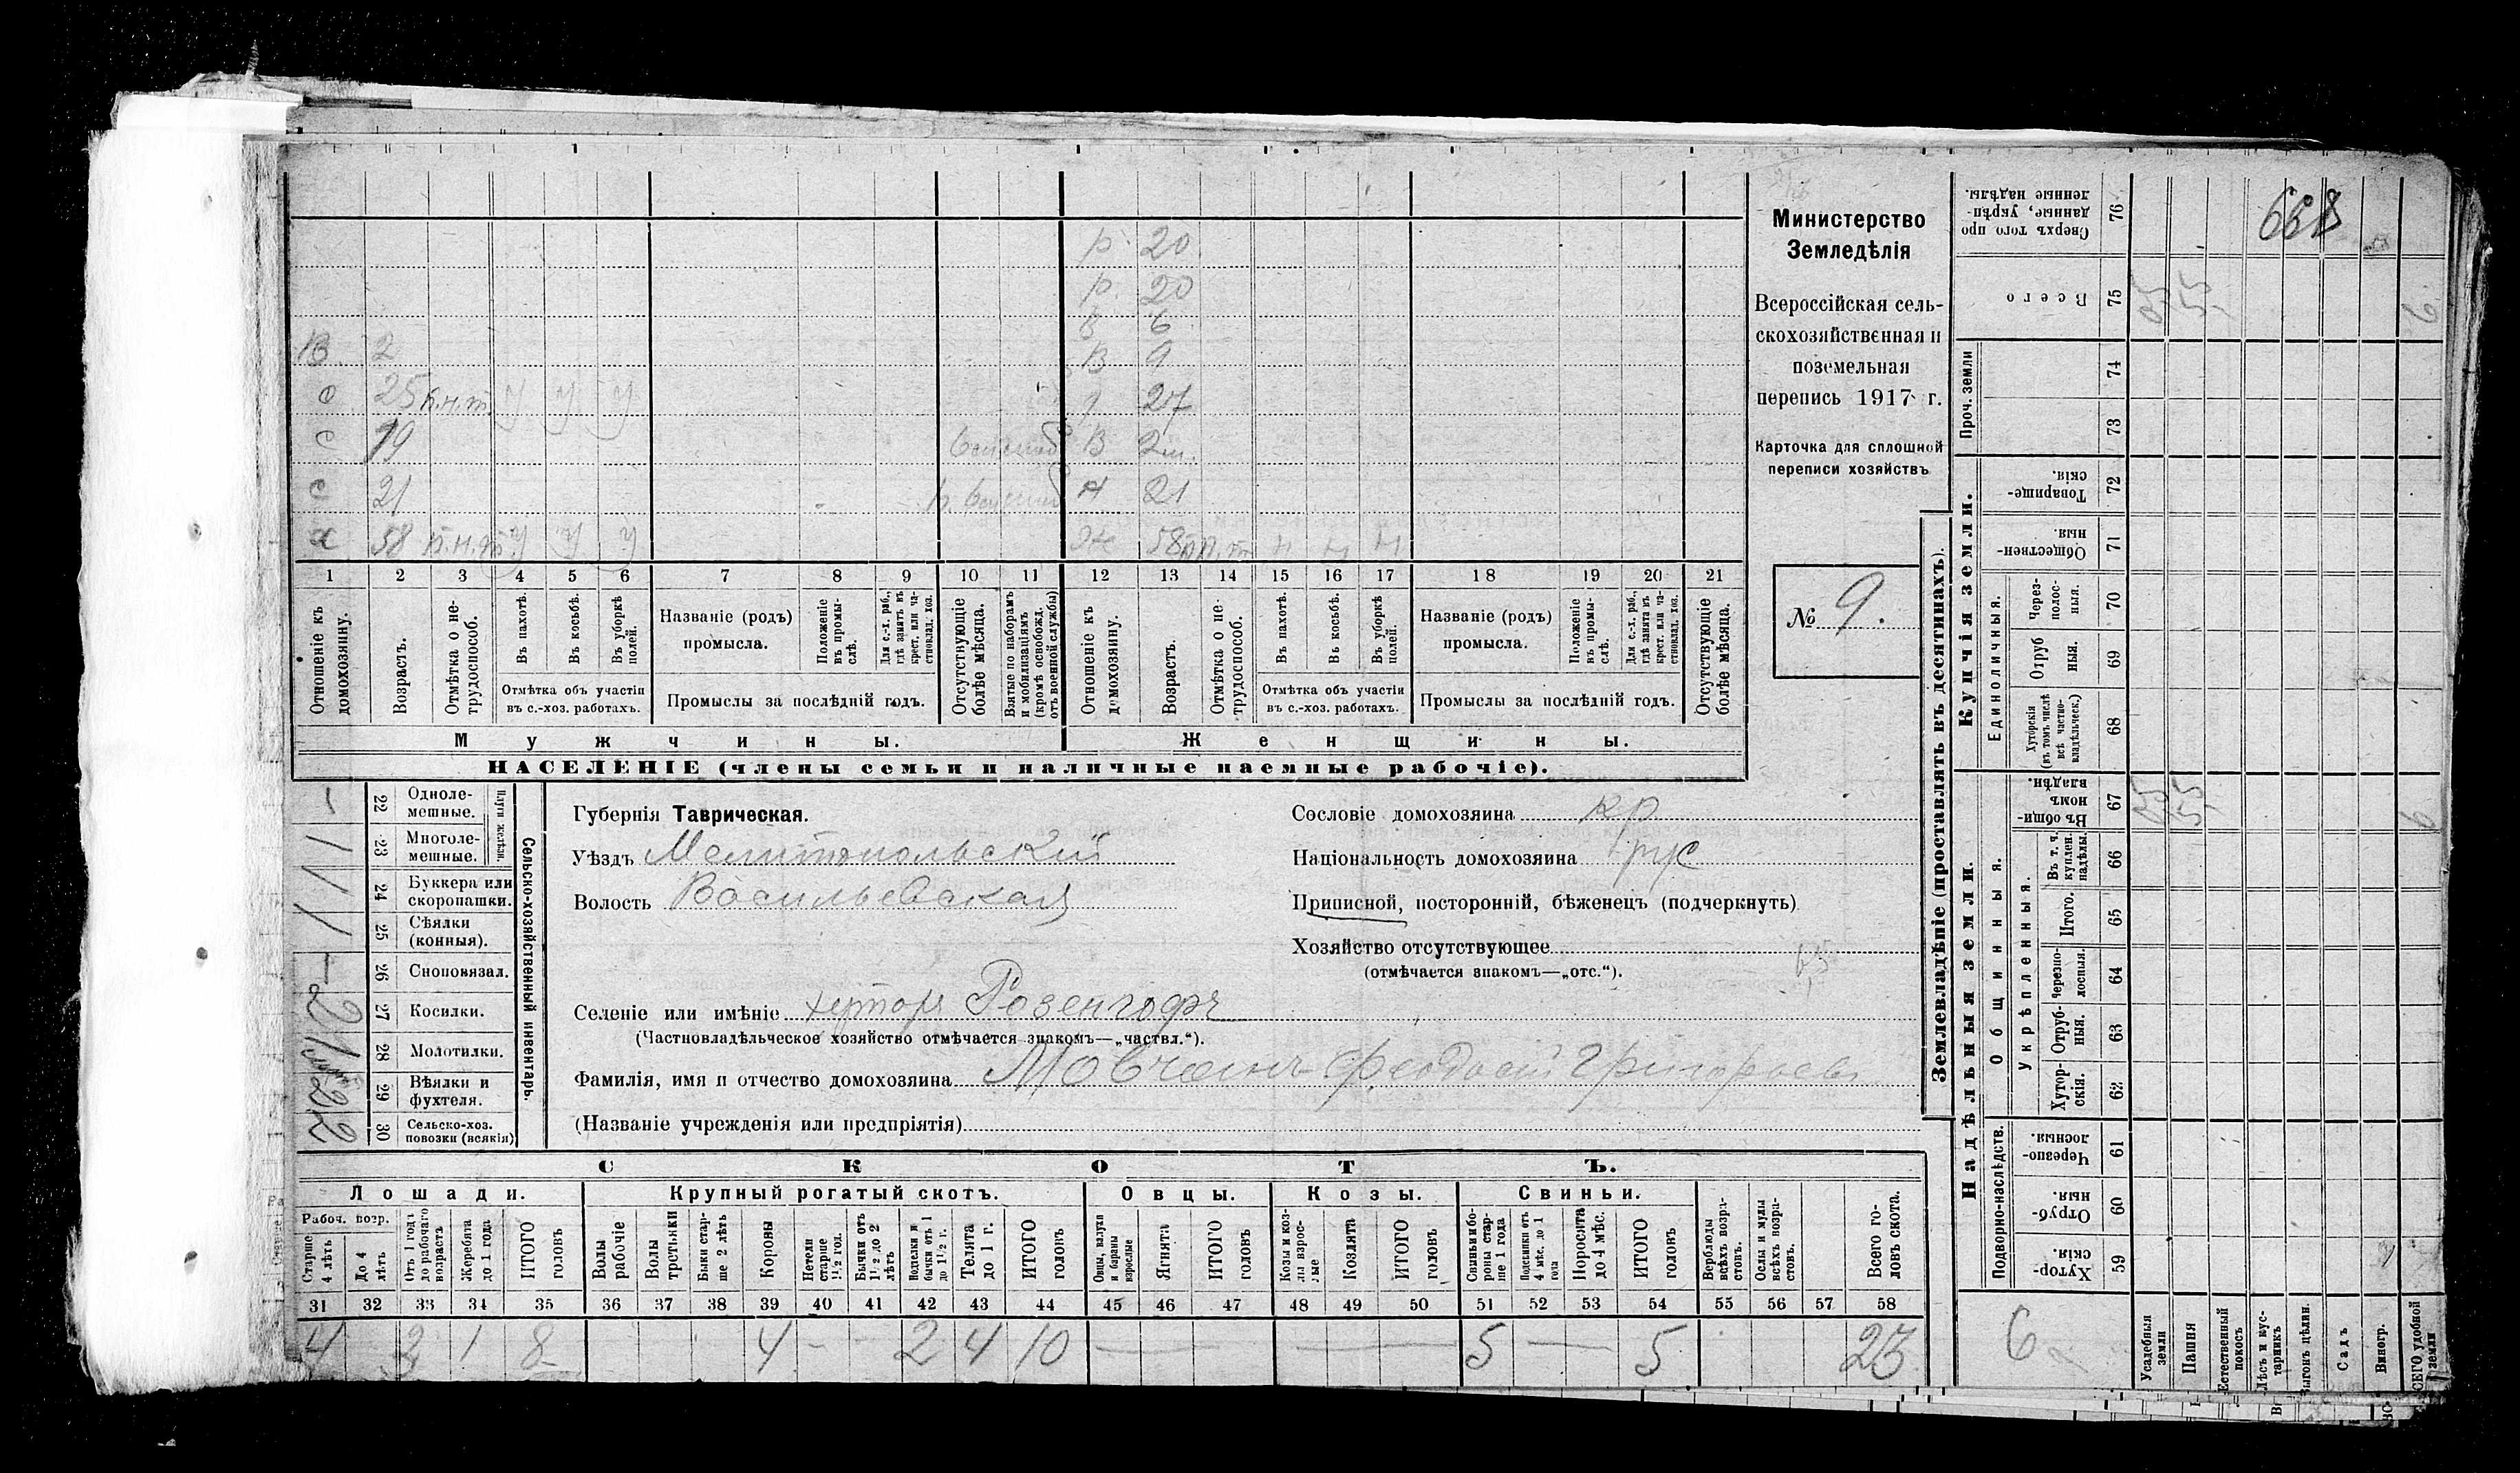 р. 20
р. 20
6
В 2 В 9
с 25 п.н.т. у у у 27
с 19 В 2 м.
с 21 21
х 58 п.н.т. у у у 58 н н н
1 2 3 4 5 6 7 8 9 10 11 12 13 14 15 16 17 18 19 20 21
Отношеніе къ домохозяину.
Возрастъ.
Отмѣтка о нетрудоспособ.
Въ пахотѣ.
Въ косьбѣ.
Въ уборкѣ полей.
Отмѣтка объ участіи
въ с.-хоз. работахъ.
Названіе (родъ)
промысла.
Положеніе въ промыслѣ.
Для с.-х. раб., гдѣ занятъ въ крест. или частновлад. хоз.
Промыслы за послѣдній годъ.
Отсутствующіе болѣе мѣсяца.
Взятые по наборамъ и мобилизаціямъ (кромѣ освобожд. отъ военной службы)
Отношеніе къ домохозяину.
Возрастъ.
Отмѣтка о нетрудоспособ.
Въ пахотѣ.
Въ косьбѣ.
Въ уборкѣ полей.
Отмѣтка объ участіи
въ с.-хоз. работахъ.
Названіе (родъ)
промысла.
Положеніе въ промыслѣ.
Для с.-х. раб., гдѣ занята въ крест. или частновлад. хоз.
Промыслы за послѣдній годъ.
Отсутствующіе болѣе мѣсяца.
Мужчины. Женщины.
НАСЕЛЕНІЕ (члены семьи и наличные наемные рабочіе).
Министерство
Земледѣлія
Всероссійская сель-
скохозяйственная и
поземельная
перепись 1917 г.
Карточка для сплошной
переписи хозяйствъ
№ 9.
22 Одноле-
мешные.
23 Многоле-
мешные.
Плуги желѣзн.
24 Буккера или
скоропашки.
25 Сѣялки
(конныя).
26 Сноповязал.
27 Косилки. 2
28 Молотилки. 1
29 Вѣялки и
фухтеля. 2
30 Сельско-хоз.
повозки (всякія) 2
Сельско-хозяйственный инвентарь.
Губернія Таврическая.
Уѣздъ Мелитопольскій
Волость Васильевская
Селеніе или имѣніе хуторъ Розенгофъ
(Частновладѣльческое хозяйство отмѣчается знакомъ—„частвл.“).
Фамилія, имя и отчество домохозяина Мовчанъ Феодосій Григорьевъ
(Названіе учрежденія или предпріятія)
Сословіе домохозяина кр
Національность домохозяина рус
Приписной, посторонній, бѣженецъ (подчеркнуть)
Хозяйство отсутствующее
(отмѣчается знакомъ—„отс.“).
СКОТЪ.
Лошади. Крупный рогатый скотъ. Овцы. Козы. Свиньи.
Рабоч. возр.
Старше 4 лѣтъ
До 4 лѣтъ
Отъ 1 года до рабочаго возраста
Жеребята до 1 года
ИТОГО головъ
Волы рабочіе
Волы третьяки
Быки старше 2 лѣтъ
Коровы
Нетели старше 1½ год.
Бычки отъ 1½ до 2 лѣтъ
Подтелки и бычки отъ 1 до 1½ г.
Телята до 1 г.
ИТОГО головъ
Овцы, валухи и бараны взрослые
Ягнята
ИТОГО головъ
Козы и козлы взрослые
Козлята
ИТОГО головъ
Свиньи и боровы старше 1 года
Подсвинки отъ 4 мѣс. до 1 года
Поросята до 4 мѣс.
ИТОГО головъ
Верблюды всѣхъ возрастовъ.
Ослы и мулы всѣхъ возрастовъ.
Всего головъ скота.
31 32 33 34 35 36 37 38 39 40 41 42 43 44 45 46 47 48 49 50 51 52 53 54 55 56 57 58
4 2 1 8 4 - 2 4 10 — — 5 — 5 23
Землевладѣніе (проставлять въ десятинахъ).
Надѣльныя земли. Купчія земли. Проч. земли
Подворно-наслѣдств.
Общинныя.
Укрѣпленныя.
Единоличныя.
Сверхъ того проданные, укрѣпленные надѣлы. 76
Всего 75
74
73
Товарищескія 72
Общественныя 71
Черезполосныя. 70
Отрубныя. 69
Хуторскія (въ томъ числѣ всѣ частновладѣльческ.) 68
Въ общинномъ владѣн. 67
Въ т. ч. куплен. надѣлы. 66
Итого. 65
Черезполосныя. 64
Отрубныя. 63
Хуторскія. 62
Черезполосныя. 61
Отрубныя 60
Хуторскія 59
6
Усадебныя земли
Пашня
Естественный покосъ
Лѣсъ и кустарникъ
Выгонъ цѣлин.
Садъ
Виногр.
ВСЕГО удобной земли